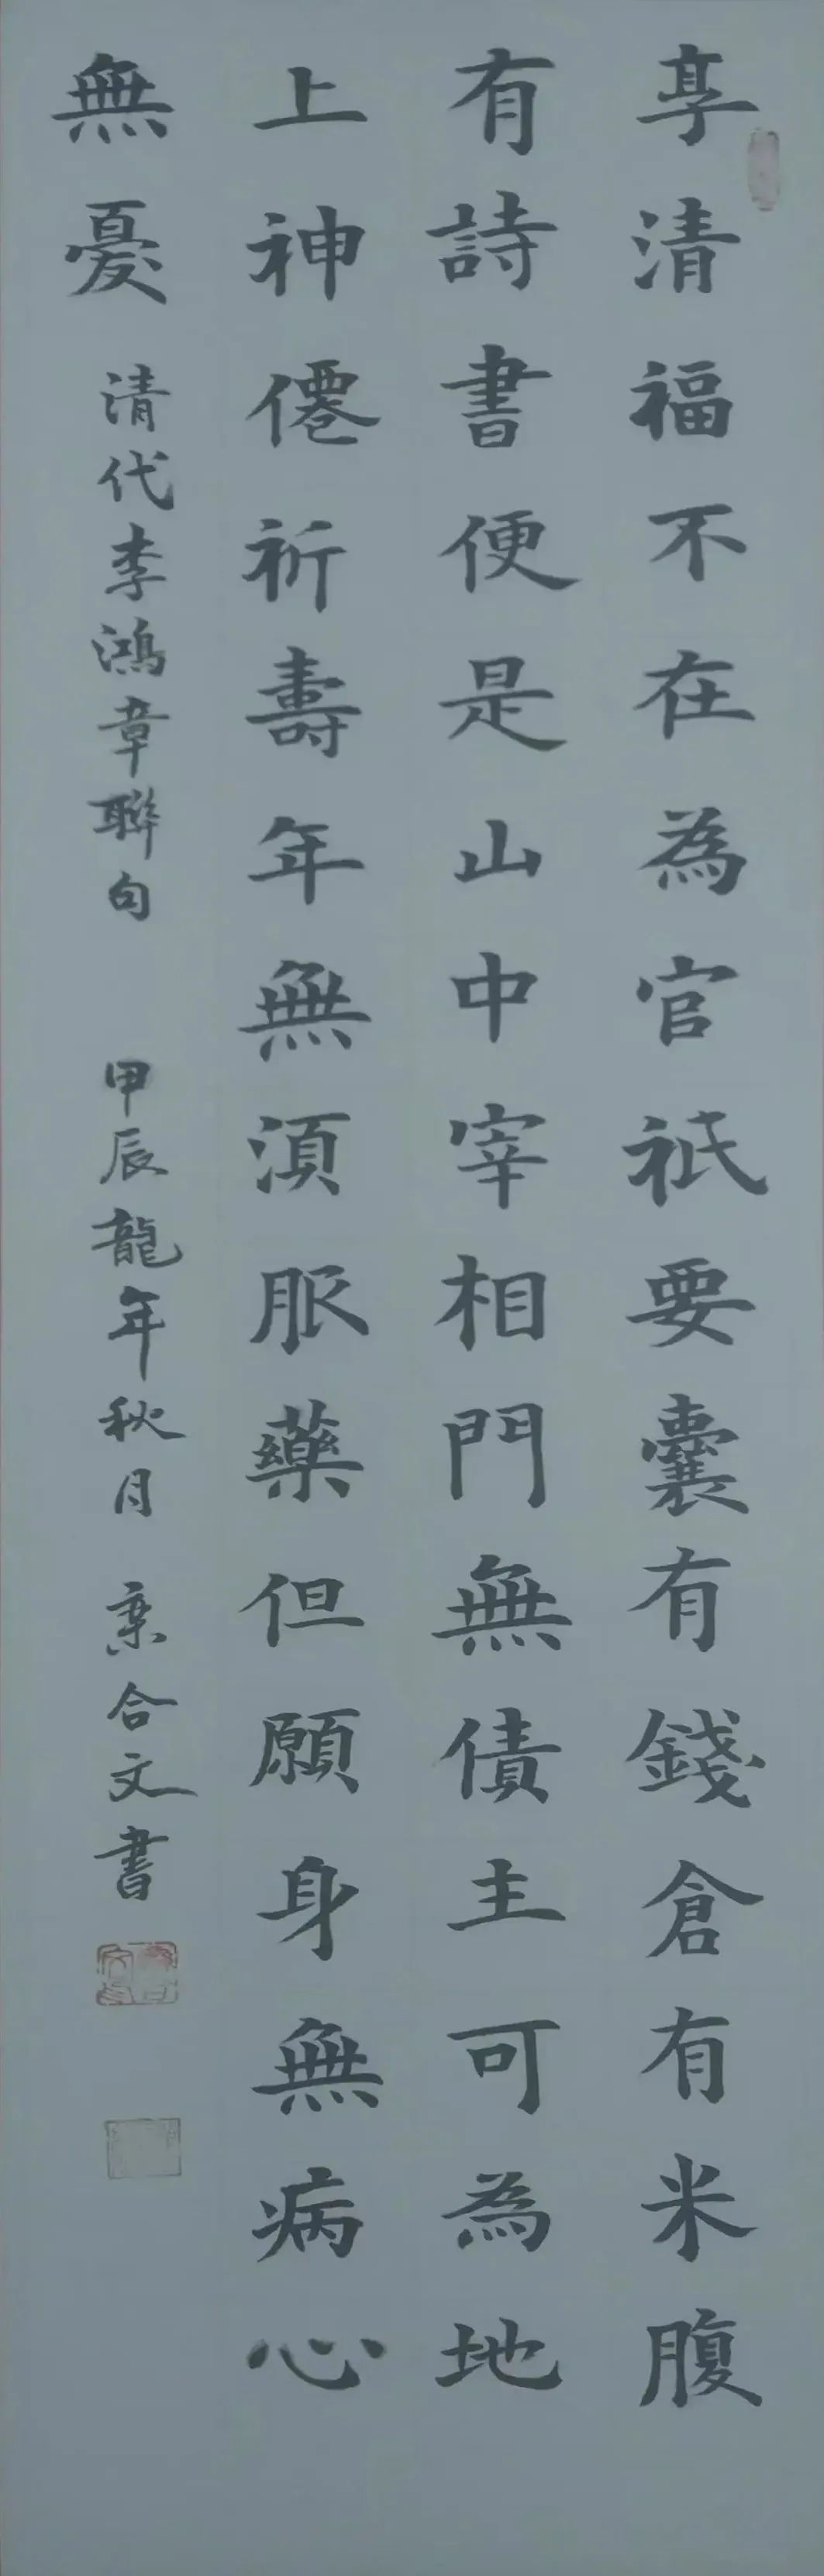 享清福不在為官祇要囊有錢倉有米腹
有詩書便是山中宰相門無債主可為地
上神僊祈壽年無須服藥但願身無病心
無憂
清代李鴻章聯句 甲辰龍年秋月 合文書